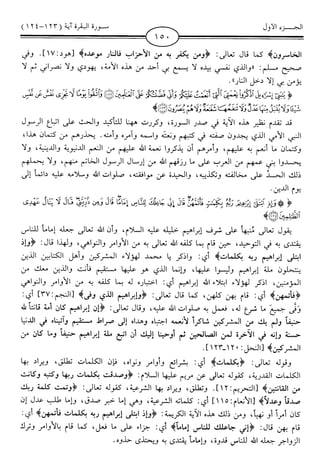 الجـــزء الأول
سـورة البقرة آية (١٢٣-١٢٤)
١٥٠
الخاسرون﴾ كما قال تعالى: ﴿ومن يكفر به من الأحزاب فالنار موعده﴾ [هود: ١٧]. وفي
صحيح مسلم: «والذي نفسي بيده لا يسمع بي أحد من هذه الأمة، يهودي ولا نصراني ثم لا
يؤمن بي إلا دخل النار».
﴿ يَٰبَنِىٓ إِسۡرَٰٓءِيلَ ٱذۡكُرُواْ نِعۡمَتِيَ ٱلَّتِيٓ أَنۡعَمۡتُ عَلَيۡكُمۡ وَأَنِّي فَضَّلۡتُكُمۡ عَلَى ٱلۡعَٰلَمِينَ ١٢٢ وَٱتَّقُواْ يَوۡمٗا لَّا تَجۡزِي نَفۡسٌ عَن نَّفۡسٖ
شَيۡـٔٗا وَلَا يُقۡبَلُ مِنۡهَا عَدۡلٞ وَلَا تَنفَعُهَا شَفَٰعَةٞ وَلَا هُمۡ يُنصَرُونَ ١٢٣ ﴾
قد تقدم نظير هذه الآية في صدر السورة، وكررت ههنا للتأكيد والحث على اتباع الرسول
النبي الأمي الذي يجدون صفته في كتبهم ونعته واسمه وأمره وأمته. يحذرهم من كتمان هذا،
وكتمان ما أنعم به عليهم، وأمرهم أن يذكروا نعمة الله عليهم من النعم الدنيوية والدينية، ولا
يحسدوا بني عمهم من العرب على ما رزقهم الله من إرسال الرسول الخاتم منهم، ولا يحملهم
ذلك الحسد على مخالفته وتكذيبه، والحيدة عن موافقته، صلوات الله وسلامه عليه دائماً إلى
يوم الدين.
﴿ ۞ وَإِذِ ٱبۡتَلَىٰٓ إِبۡرَٰهِـۧمَ رَبُّهُۥ بِكَلِمَٰتٖ فَأَتَمَّهُنَّۖ قَالَ إِنِّي جَاعِلُكَ لِلنَّاسِ إِمَامٗاۖ قَالَ وَمِن ذُرِّيَّتِيۖ قَالَ لَا يَنَالُ عَهۡدِي
ٱلظَّٰلِمِينَ ١٢٤ ﴾
يقول تعالى مُنبهاً على شرف إبراهيم خليله عليه السلام، وأن الله تعالى جعله إماماً للناس
يقتدى به في التوحيد، حين قام بما كلفه الله تعالى به من الأوامر والنواهي، ولهذا قال: ﴿وإذ
ابتلى إبراهيم ربه بكلمات﴾ أي: واذكر يا محمد لهؤلاء المشركين وأهل الكتابين الذين
ينتحلون ملة إبراهيم وليسوا عليها، وإنما الذي هو عليها مستقيم فأنت والذين معك من
المؤمنين، اذكر لهؤلاء ابتلاء الله إبراهيم أي: اختباره له بما كلفه به من الأوامر والنواهي
﴿فأتمهن﴾ أي: قام بهن كلهن، كما قال تعالى: ﴿وإبراهيم الذي وفى﴾ [النجم: ٣٧] أي:
وَفّى جميعَ ما شرع له، فعمل به صلوات الله عليه، وقال تعالى: ﴿إن إبراهيم كان أمة قانتاً لله
حنيفاً ولم يك من المشركين شاكراً لأنعمه اجتباه وهداه إلى صراط مستقيم وآتيناه في الدنيا
حسنة وإنه في الآخرة لمن الصالحين ثم أوحينا إليك أن اتبع ملة إبراهيم حنيفاً وما كان من
المشركين﴾ [النحل: ١٢٠-١٢٣].
وقوله تعالى: ﴿بكلمات﴾ أي: بشرائع وأوامر ونواه، فإن الكلمات تطلق، ويراد بها
الكلمات القدرية، كقوله تعالى عن مريم عليها السلام: ﴿وصدقت بكلمات ربها وكتبه وكانت
من القانتين﴾ [التحريم: ١٢]. وتطلق، ويراد بها الشرعية، كقوله تعالى: ﴿وتمت كلمة ربك
صدقاً وعدلاً﴾ [الأنعام: ١١٥] أي: كلماته الشرعية، وهي إما خبر صدق، وإما طلب عدل إن
كان أمراً أو نهياً، ومن ذلك هذه الآية الكريمة: ﴿وإذ ابتلى إبراهيم ربه بكلمات فأتمهن﴾ أي:
قام بهن قال: ﴿إني جاعلك للناس إماماً﴾ أي: جزاء على ما فعل، كما قام بالأوامر وترك
الزواجر جعله الله للناس قدوة، وإماماً يقتدى به ويحتذى حذوه.